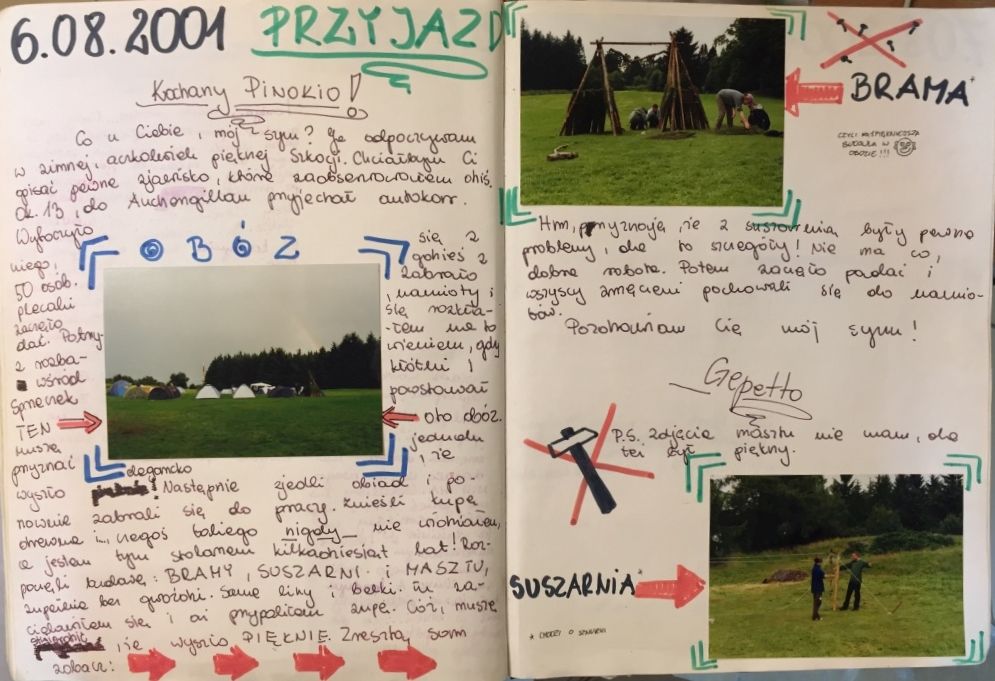 6.08.2001 PRZYJAZD
Kochany PINOKIO!
Co u Ciebie, mój synu? Ja odpoczywam
w zimnej aczkolwiek pięknej Szkocji. Chciałbym Ci
opisać pewne zjawisko, które zaobserwowałem dziś.
Ok. 13, do Auchengillan przyjechał autokar.
Wytoczyło się z
niego, gdzieś z
50 osób. zabrało
plecaki, namioty i
zaczęło się rozkła-
dać. Patrzy-łem na to
z rozba-wieniem, gdy
wśród kłótni i
sprzeczek powstawał
TEN oto obóz.
Muszę jednak
przyznać, że
OBÓZ
wyszło elegancko! Następnie zjedli obiad i po-
nownie zabrali się do pracy. Znieśli kupę
drewna i... czegoś takiego nigdy nie widziałem,
a jestem tym stolarzem kilkadziesiąt lat! Roz-
poczęli budowę: BRAMY, SUSZARNI i MASZTU,
zupełnie bez gwoździ. Same liny i belki. Tu za-
ciekawiłem się i aż przypaliłem zupę. Cóż, muszę
, że wyszło PIĘKNIE. Zresztą sam
zobacz:
BRAMA*
CZYLI NAJPIĘKNIEJSZA
BUDOWLA W
OBOZIE!!!
Hm, przyznaję, że z suszarnią były pewne
problemy, ale to szczegóły! Nie ma co,
dobra robota. Potem zaczęło padać i
wszyscy zmęczeni pochowali się do namio-
tów.
Pozdrawiam Cię mój synu!
Gepetto
P.S. Zdjęcia masztu nie mam, ale
też był piękny.
SUSZARNIA*
* CHODZI O